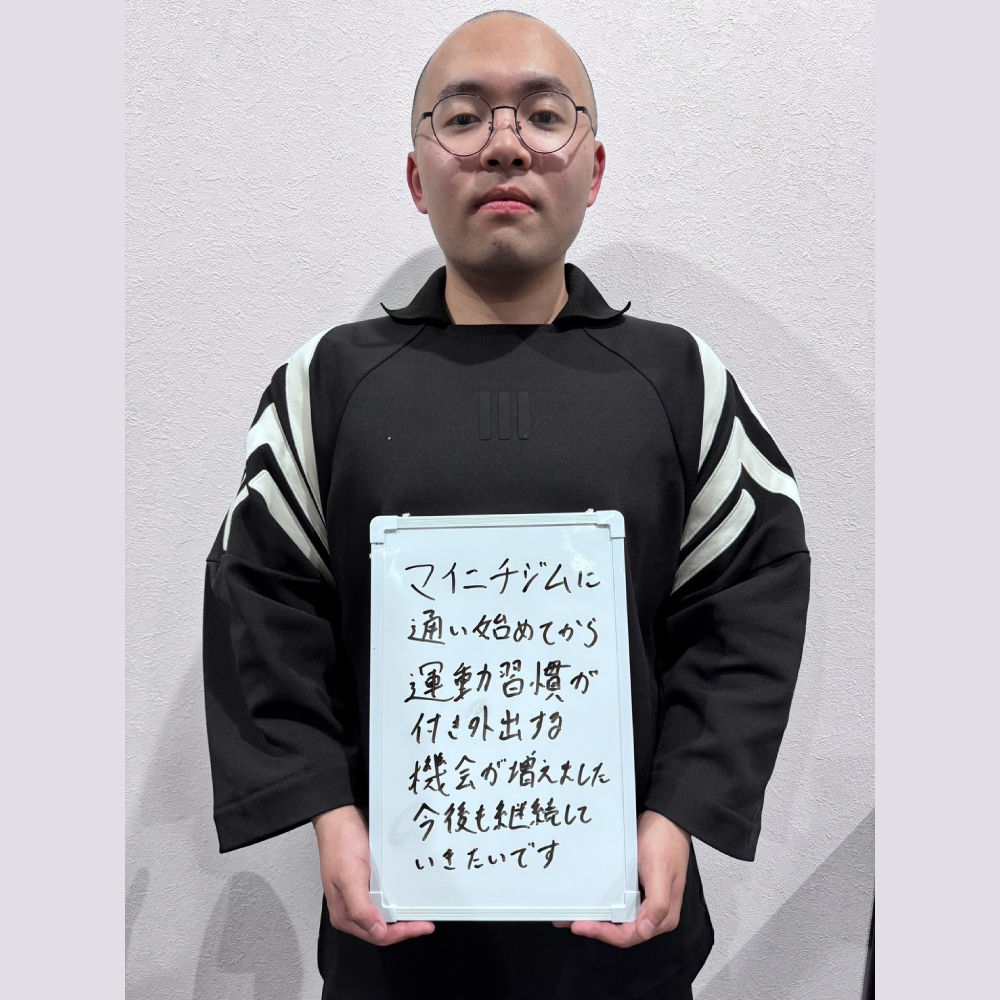 マイニチジムに
通い始めてから
運動習慣が
付き外出する
機会が増えました
今後も継続して
いきたいです